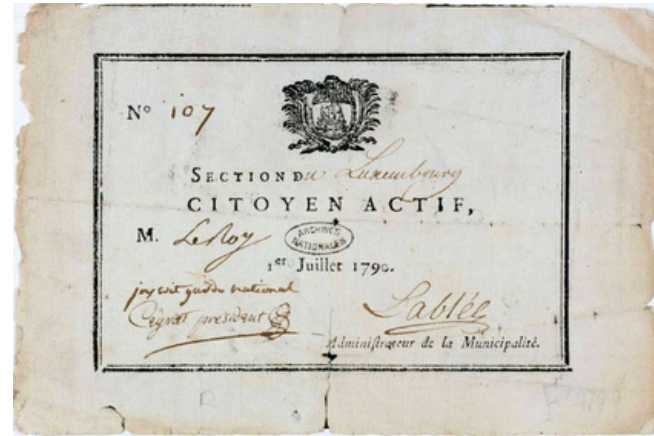 N° 107
SECTION Du Luxembourg
CITOYEN ACTIF,
M. LeRoy
ARCHIVES
NATIONALES
1er Juillet 1790.
inscrit garde national
Ceyrat président
Lablée
Administrateur de la Municipalité.